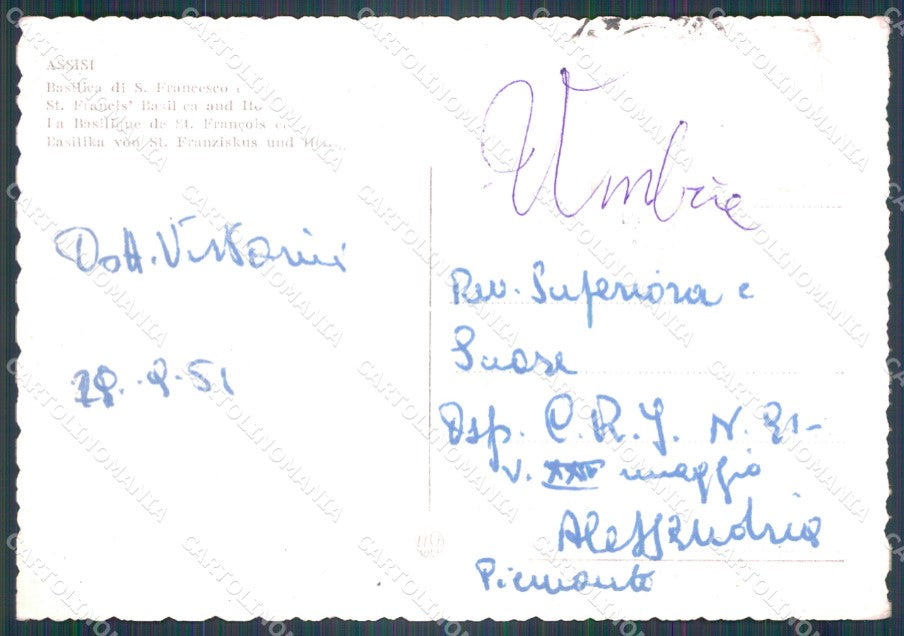 ASSISI
Basilica di S. Francesco
St. Francis' Basilica and
La Basilique de St. François
Basilika von St. Franziskus und
Umbria
Dott. Vittorini
Rev. Superiora e
Suore
Osp. C.R.I. N. 31-
V. XXIV maggio
Alessandria
Piemonte
CARTOLINOMANIA